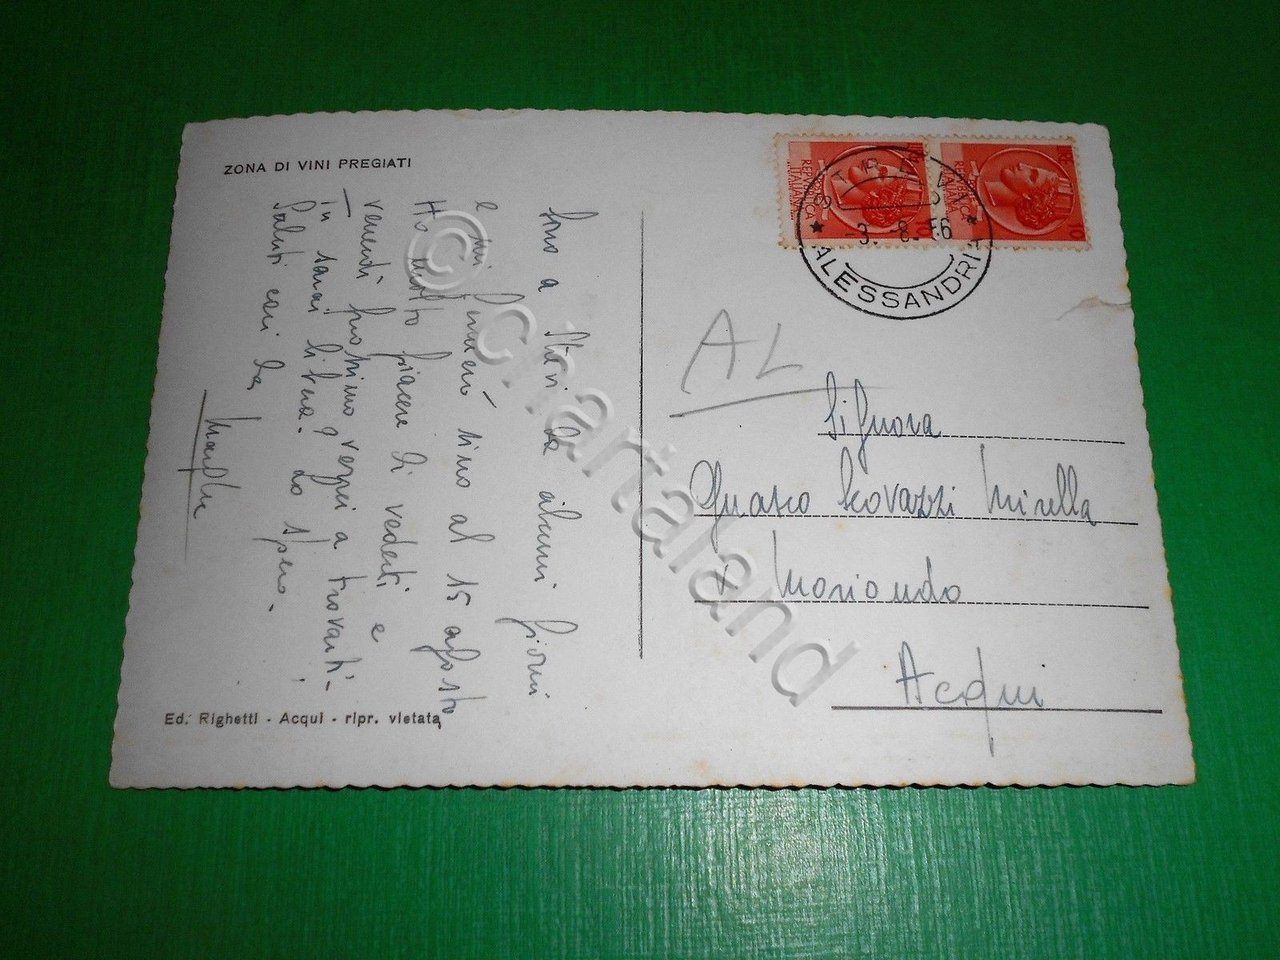 ZONA DI VINI PREGIATI
Sono a Strevi da alcuni giorni
e mi fermerò sino al 15 agosto
Ho molto piacere di vederti e
venerdì prossimo verrei a trovarti -
in sarai libera. Lo spero.
Saluti cari da
Ed. Righetti - Acqui - ripr. vietata
REPUBBLICA
ITALIANA
STREVI
-3.-8.56
ALESSANDRIA
AL
Signora
Guasco Scovazzi Mirella
Moriondo
Acqui
© chartaland